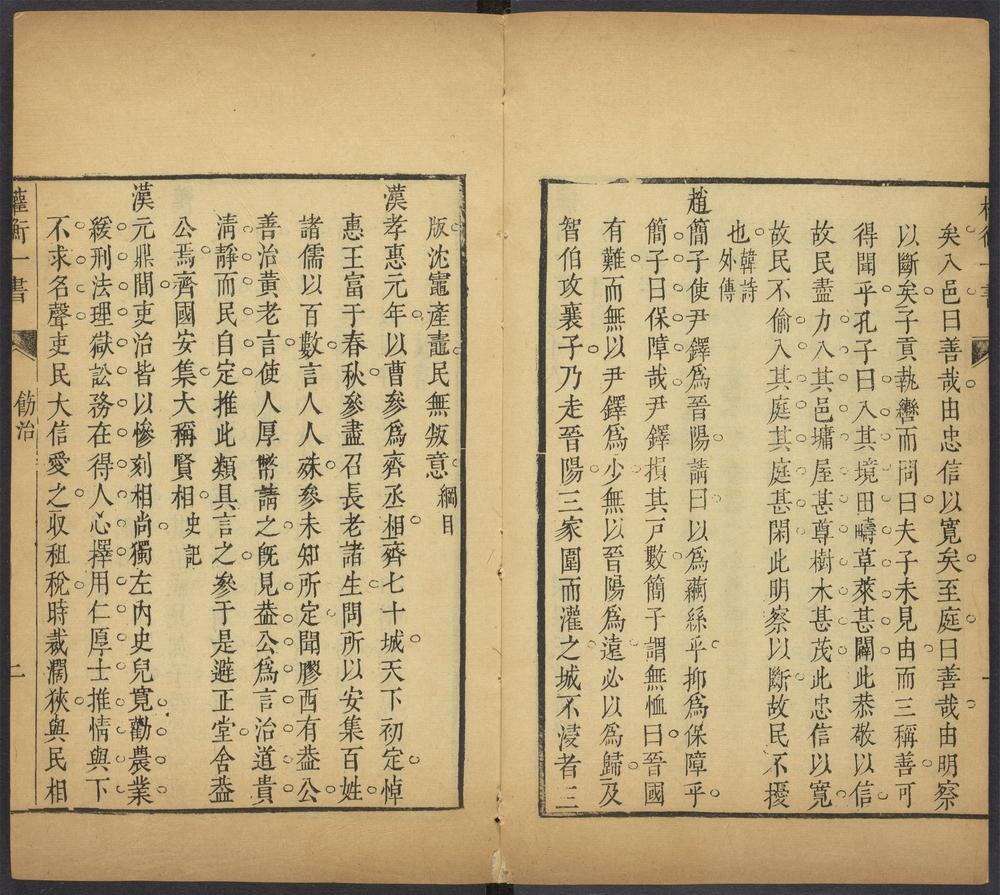 矣入邑曰善哉由忠信以寬矣至庭曰善哉由明察
以斷矣子貢執轡而問曰夫子未見由而三稱善可
得聞乎孔子曰入其境田疇草萊甚闢此恭敬以信
故民盡力入其邑墉屋甚尊樹木甚茂此忠信以寬
故民不偷入其庭其庭甚閑此明察以斷故民不擾
也韓詩
外傳
趙簡子使尹鐸爲晉陽請曰以爲繭絲乎抑爲保障乎
簡子曰保障哉尹鐸損其戸數簡子謂無恤曰晉國
有難而無以尹鐸爲少無以晉陽爲遠必以爲歸及
智伯攻襄子乃走晉陽三家圍而灌之城不浸者三
版沈竈產鼃民無叛意綱目
漢孝惠元年以曹參爲齊丞相齊七十城天下初定悼
惠王富于春秋參盡召長老諸生問所以安集百姓
諸儒以百數言人人殊參未知所定聞膠西有葢公
善治黃老言使人厚幣請之旣見葢公爲言治道貴
淸靜而民自定推此類具言之參于是避正堂舍葢
公焉齊國安集大稱賢相史記
漢元鼎間吏治皆以慘刻相尚獨左內史兒寬勸農業
緩刑法理獄訟務在得人心擇用仁厚士推情與下
不求名聲吏民大信愛之收租稅時裁濶狹與民相
權衡一書
飭治
二